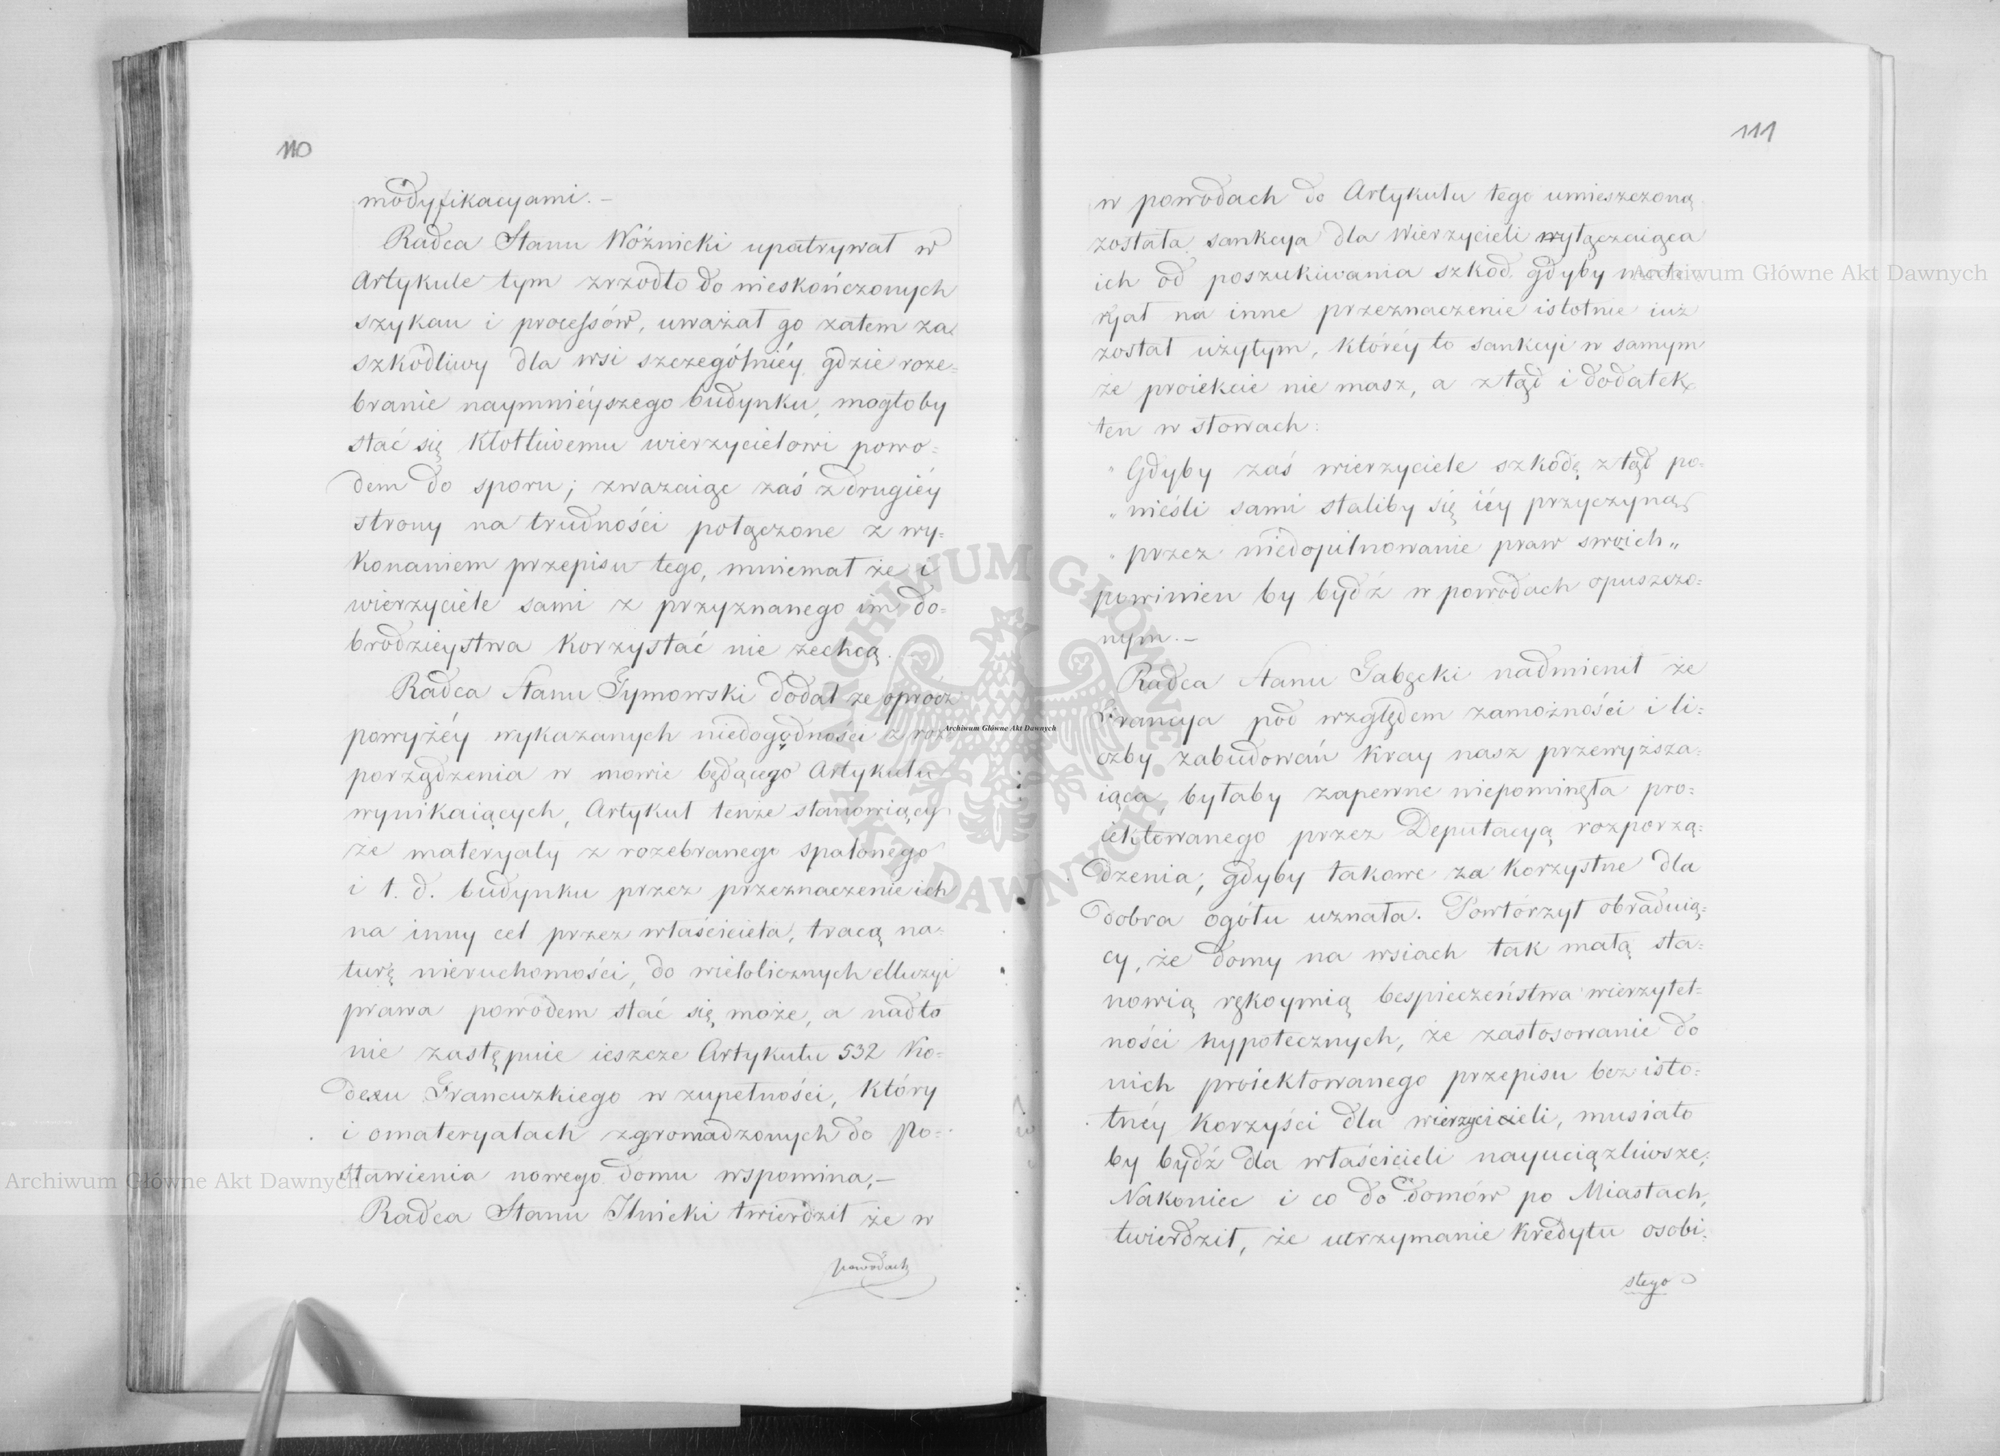 110
modyfikacyami. –
Radca Stanu Woźnicki upatrywał w
Artykule tym zrzodło do nieskończonych
szykan i processów, uważał go zatem za
szkodliwy dla wsi szczególniéy gdzie roze=
branie naymniéyszego budynku, mogłoby
stać się kłotliwemu wierzycielowi powo=
dem do sporu; zważaiąc zaś z drugiéy
strony na trudności połączone z wy=
konaniem przepisu tego, mniemał że i
wierzyciele sami z przyznanego im do=
brodzieystwa korzystać nie zechcą. –
Radca Stanu Tymowski dodał że oprocz
powyżéy wykazanych niedogodności z roz=
porządzenia w mowie będącego Artykułu
wynikaiących, Artykuł tenże stanowiący
że materyały z rozebranego spalonego
i t. d. budynku przez przeznaczenie ich
na inny cel przez właściciela, tracą na=
turę nieruchomości, do wielolicznych elluzyi
prawa powodem stać się może, a nadto
nie zastępuie ieszcze Artykułu 532 Ko=
dexu Francuzkiego w zupełności, który
i o materyałach zgromadzonych do po=
stawienia nowego domu wspomina, –
Radca Stanu Ilnicki twierdził że w
powodach
111
w powodach do Artykułu tego umieszczoną
została sankcya dla Wierzycieli wyłączaiąca
ich od poszukiwania szkod gdyby mate=
ryał na inne przeznaczenie istotnie iuż
został użytym, któréy to sankcyi w samym
że proiekcie nie masz, a ztąd i dodatek
ten w słowach:
" Gdyby zaś wierzyciele szkodę ztąd po=
" nieśli sami staliby się iéy przyczyną
" przez niedopilnowanie praw swoich „
powinien by bydź w powodach opuszczo=
nym. –
Radca Stanu Gałęcki nadmienił że
Francya pod względem zamożności i li=
czby zabudowań kray nasz przewyższa=
iąca, byłaby zapewne niepominęła pro=
iektowanego przez Deputacyą rozporzą=
dzenia, gdyby takowe za korzystne dla
dobra ogółu uznała. Powtórzył obraduią=
cy, że domy na wsiach tak małą sta=
nowią rękoymią bespieczeństwa wierzytel=
ności hypotecznych, że zastosowanie do
nich proiektowanego przepisu bez isto=
tnéy korzyści dla wierzycieli, musiało
by bydź dla właścicieli nayuciążliwsze,
Nakoniec i co do domów po Miastach,
twierdził, że utrzymanie kredytu osobi=
stego
Archiwum Główne Akt Dawnych
Archiwum Główne Akt Dawnych
Archiwum Główne Akt Dawnych
ARCHIWUM GŁÓWNE AKT DAWNYCH